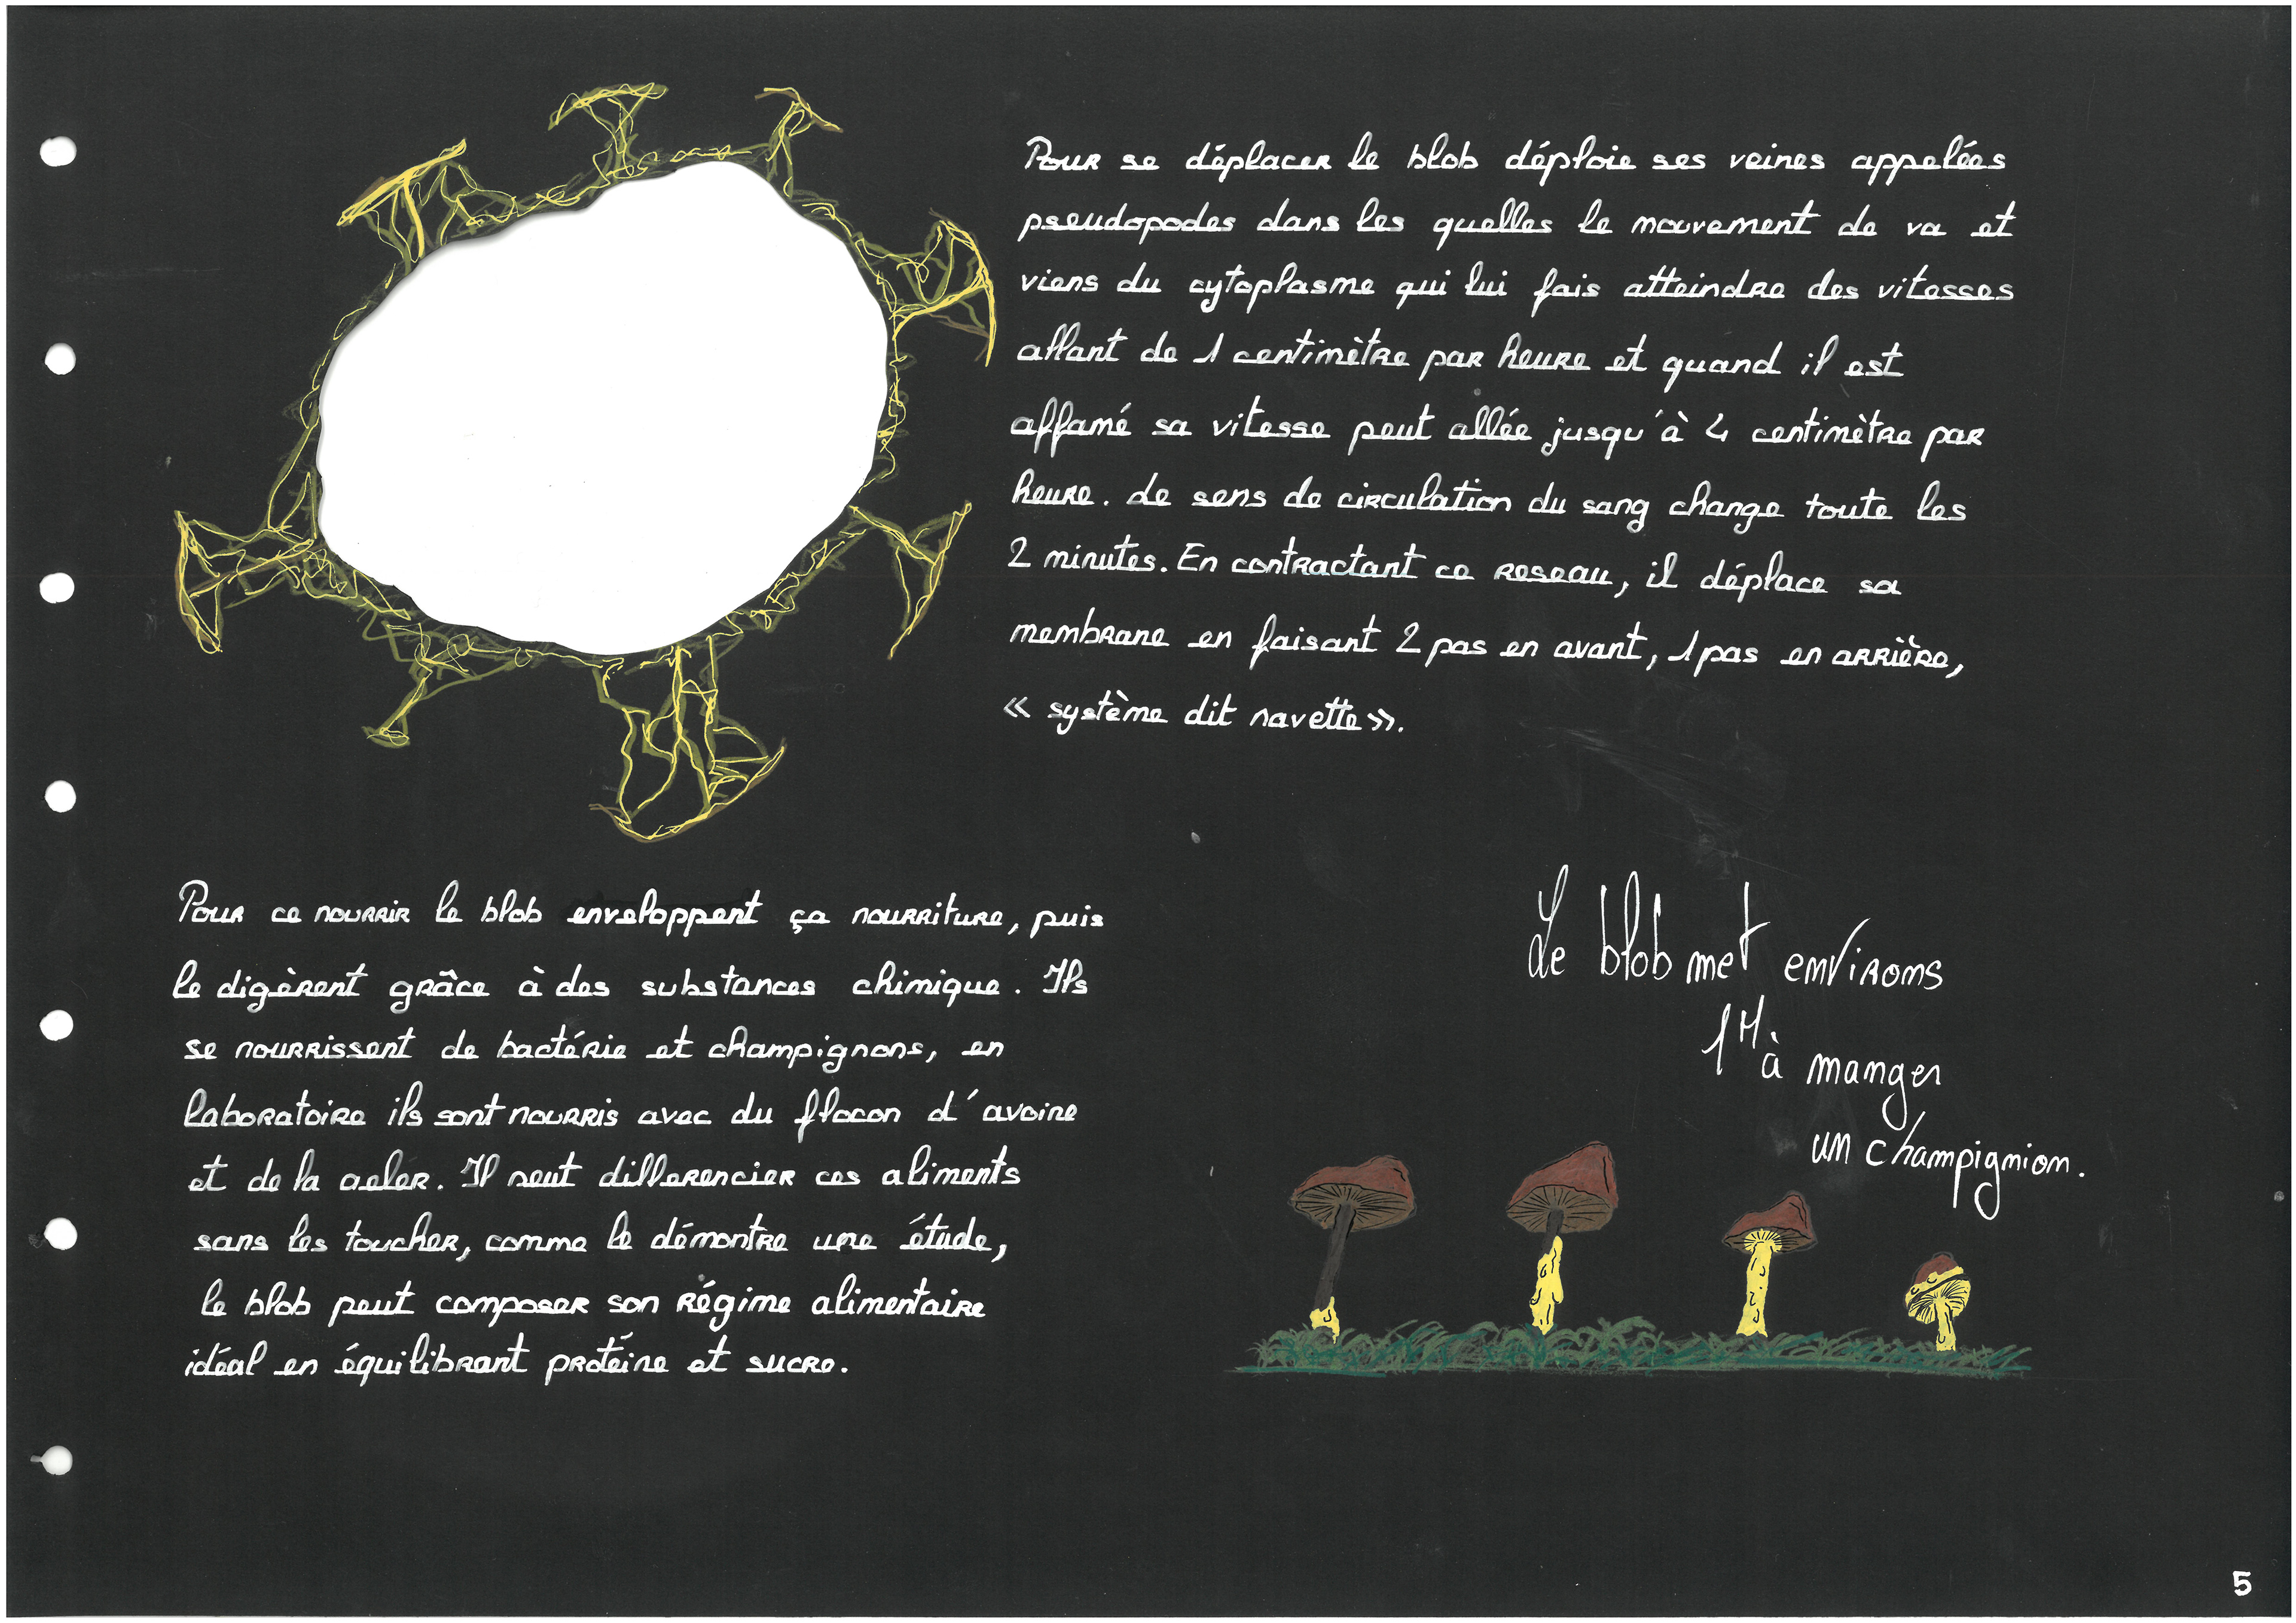 Pour se déplacer le blob déploie ses veines appelées
pseudopodes dans les quelles le mouvement de va et
viens du cytoplasme qui lui fais atteindre des vitesses
allant de 1 centimètre par heure et quand il est
affamé sa vitesse peut allée jusqu'à 4 centimètre par
heure. Le sens de circulation du sang change toute les
2 minutes. En contractant ce reseau, il déplace sa
membrane en faisant 2 pas en avant, 1 pas en arrière,
« système dit navette ».
Pour ce nourrir le blob enveloppent ça nourriture, puis
le digèrent grâce à des substances chimique. Ils
se nourrissent de bactérie et champignons, en
laboratoire ils sont nourris avec du flocon d'avoine
et de la gelér. Il peut differencier ces aliments
sans les toucher, comme le démontre une étude,
le blob peut composer son régime alimentaire
idéal en équilibrant protéine et sucre.
Le blob met environs
1H à manger
un champignion.
5